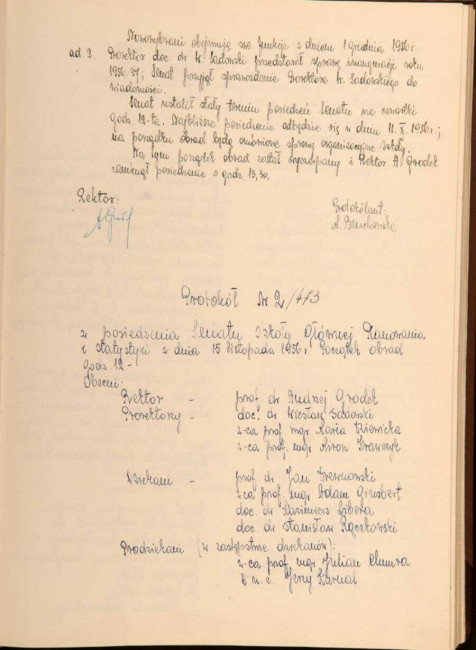 Nowowybrani obejmują swe funkcje z dniem 1 grudnia 1956r.
ad. 2. Prorektor doc. dr W. Sadowski przedstawił sprawę inauguracji roku
1956/57; Senat przyjął sprawozdanie Prorektora W. Sadowskiego do
wiadomości.
Senat ustalił stały termin posiedzeń Senatu na czwartki
godz. 12-ta. Najbliższe posiedzenie odbędzie się w dniu 11. X. 1956r.;
na porządku obrad będą omówione sprawy organizacyjne Szkoły.
Na tym porządek obrad został wyczerpany i Rektor A. Grodek
zamknął posiedzenie o godz. 13,30.
Rektor:
Protokólant:
Protokół Nr 2/473
z posiedzenia Senatu Szkoły Głównej Planowania
i Statystyki z dnia 15 listopada 1956r. Początek obrad
godz. 12 -
Obecni:
Rektor - prof. dr Andrzej Grodek
Prorektorzy - doc. dr Wiesław Sadowski
z-ca prof. mgr Maria
z-ca prof. mgr Miron Krawczyk
Dziekani - prof. dr Jan Drewnowski
z-ca prof. mgr Adam Ginsbert
doc. dr Kazimierz Libera
doc. dr Stanisław Rączkowski
Prodziekani (w zastępstwie dziekanów):
z-ca prof. mgr Julian
Jerzy